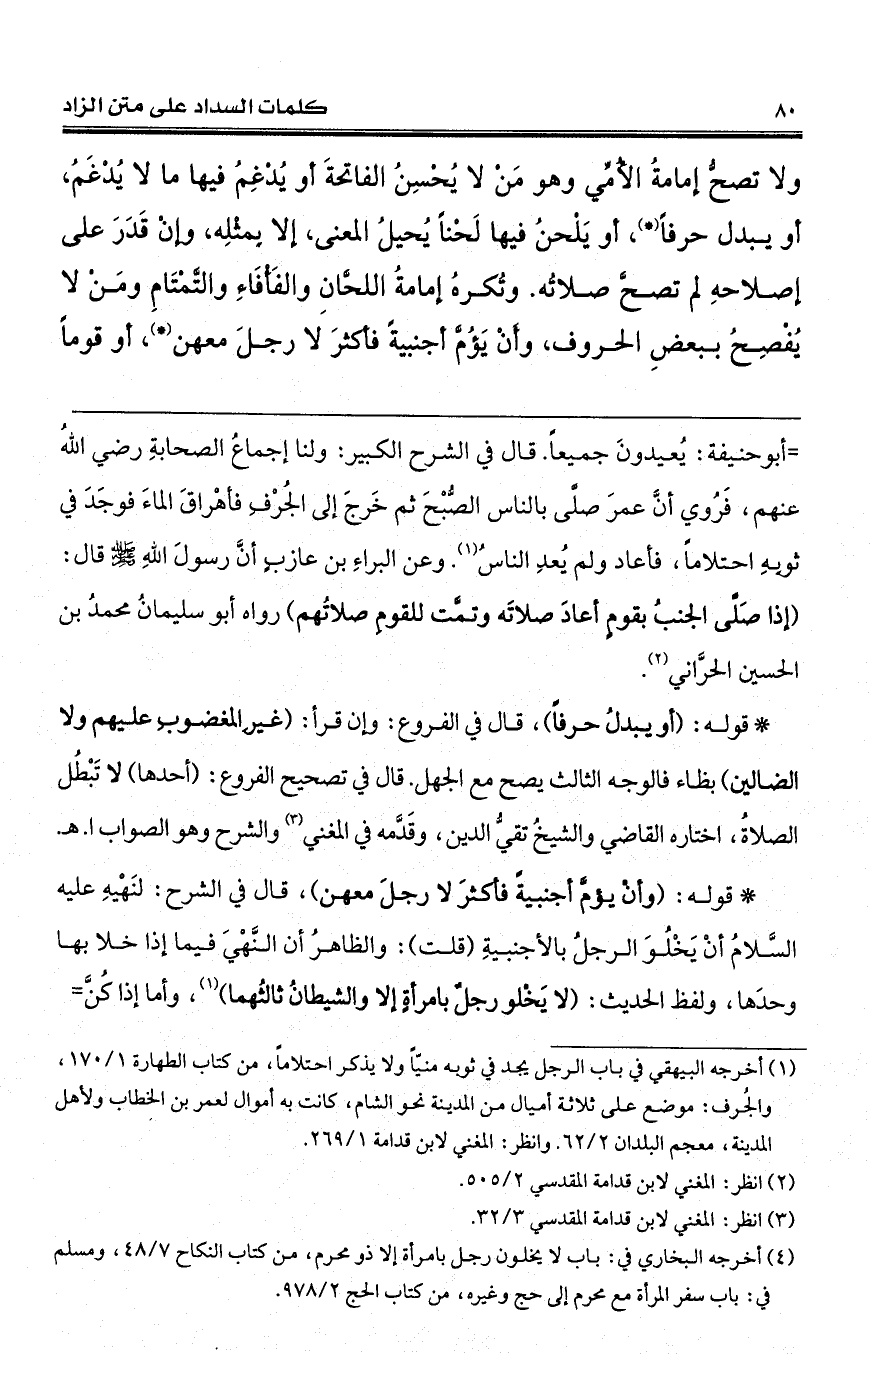 ٨٠ كلمات السداد على متن الزاد
ولا تصحُّ إمامةُ الأُمِّي وهو مَنْ لا يُحْسِنُ الفاتحةَ أو يُدْغِمُ فيها ما لا يُدْغَمُ،
أو يـبدل حرفاً(*)، أو يَلْحنُ فيها لَحْناً يُحيلُ المعنى، إلا بِمثْلِه، وإنْ قَدَرَ على
إصـلاحهِ لم تصـحَّ صـلاتُه. وتُكـرهُ إمامةُ اللحَّانِ والفَأْفَاءِ والتَّمْتَامِ ومَـنْ لا
يُفْصِـحُ بـبعضِ الحـروف، وأنْ يَؤُمَّ أجنبيةً فأكثرَ لا رجـلَ معهن(*)، أو قوماً
=أبوحنيفة: يُعـيدونَ جمـيعاً. قـال في الشـرح الكـبير: ولـنا إجماعُ الصحابةِ رضي اللهُ
عنهم، فَرُوي أنَّ عمرَ صلَّى بالناس الصُّبْحَ ثم خَرجَ إلى الجُرْفِ فأهْراقَ الماءَ فوجَدَ في
ثوبـهِ احـتلاماً، فأعاد ولم يُعدِ الناسُ(١). وعن البراءِ بن عازبٍ أنَّ رسولَ اللهِ ﷺ قال:
(إذا صَلَّى الجنبُ بقومٍ أعادَ صلاتَه وتـمَّت للقومِ صلاتُهم) رواه أبو سليمانُ محمدُ بن
الحسين الحرَّاني(٢).
* قولـه: (أو يـبدلُ حـرفاً)، قـال في الفـروع: وإن قرأ: (غـير المغضـوبِ علـيهم ولا
الضـالين) بظـاء فالوجـه الثالـث يصـح مـع الجهـل. قال في تصحيح الفروع: (أحدها) لا تَبْطُل
الصلاةُ، اختاره القاضي والشيخُ تقيُّ الدين، وقَدَّمه في المغني(٣) والشرح وهو الصواب ا.هـ.
* قولـه: (وأنْ يـؤمَّ أجنبيةً فأكثرَ لا رجـلَ معهـن)، قـال في الشرح: لنَهْيِهِ عليه
السَّـلامُ أنْ يَخْلُـوَ الـرجلُ بالأجنبـيةِ (قلـت): والظاهـرُ أن الـنَّهْيَ فـيما إذا خـلا بهـا
وحدَها، ولفظ الحديث: (لا يَخْلو رجلٌ بامرأةٍ إلا والشيطانُ ثالثُهما)(١)، وأما إذا كُنَّ=
(١) أخرجه البيهقي في باب الرجل يجد في ثوبه منيّاً ولا يذكر احتلاماً، من كتاب الطهارة ١٧٠/١،
والجُرف: موضع على ثلاثة أميال من المدينة نحو الشام، كانت به أموال لعمر بن الخطاب ولأهل
المدينة، معجم البلدان ٦٢/٢. وانظر: المغني لابن قدامة ٢٦٩/١.
(٢) انظر: المغني لابن قدامة المقدسي ٥٠٥/٢.
(٣) انظر: المغني لابن قدامة المقدسي ٣٢/٣.
(٤) أخرجه البخاري في: باب لا يخلون رجل بامرأة إلا ذو محرم، من كتاب النكاح ٤٨/٧، ومسلم
في: باب سفر المرأة مع محرم إلى حج وغيره، من كتاب الحج ٩٧٨/٢.